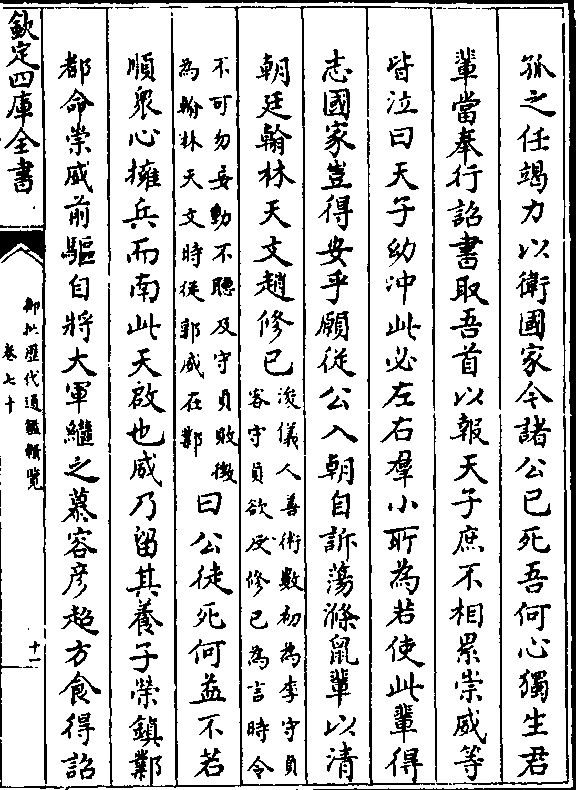 孤之任竭力以衛國家今諸公已死吾何心獨生君
輩當奉行詔書取吾首以報天子庶不相累崇威等
皆泣曰天子幼冲此必左右羣小所為若使此輩得
志國家豈得安乎願從公入朝自訴蕩滌鼠輩以清
朝廷翰林天文趙修已
浚儀人善術數初為李守貞
客守貞欲反修已為言時令
不可勿妄動不聽及守貞敗徴
為翰林天文時從郭威在鄴
曰公徒死何益不若
順衆心擁兵而南此天啟也威乃留其養子榮鎮鄴
都命崇威前驅自將大軍繼之慕容彦超方食得詔
欽定四庫全書
御批歷代通鑑輯覽
卷七十
十一